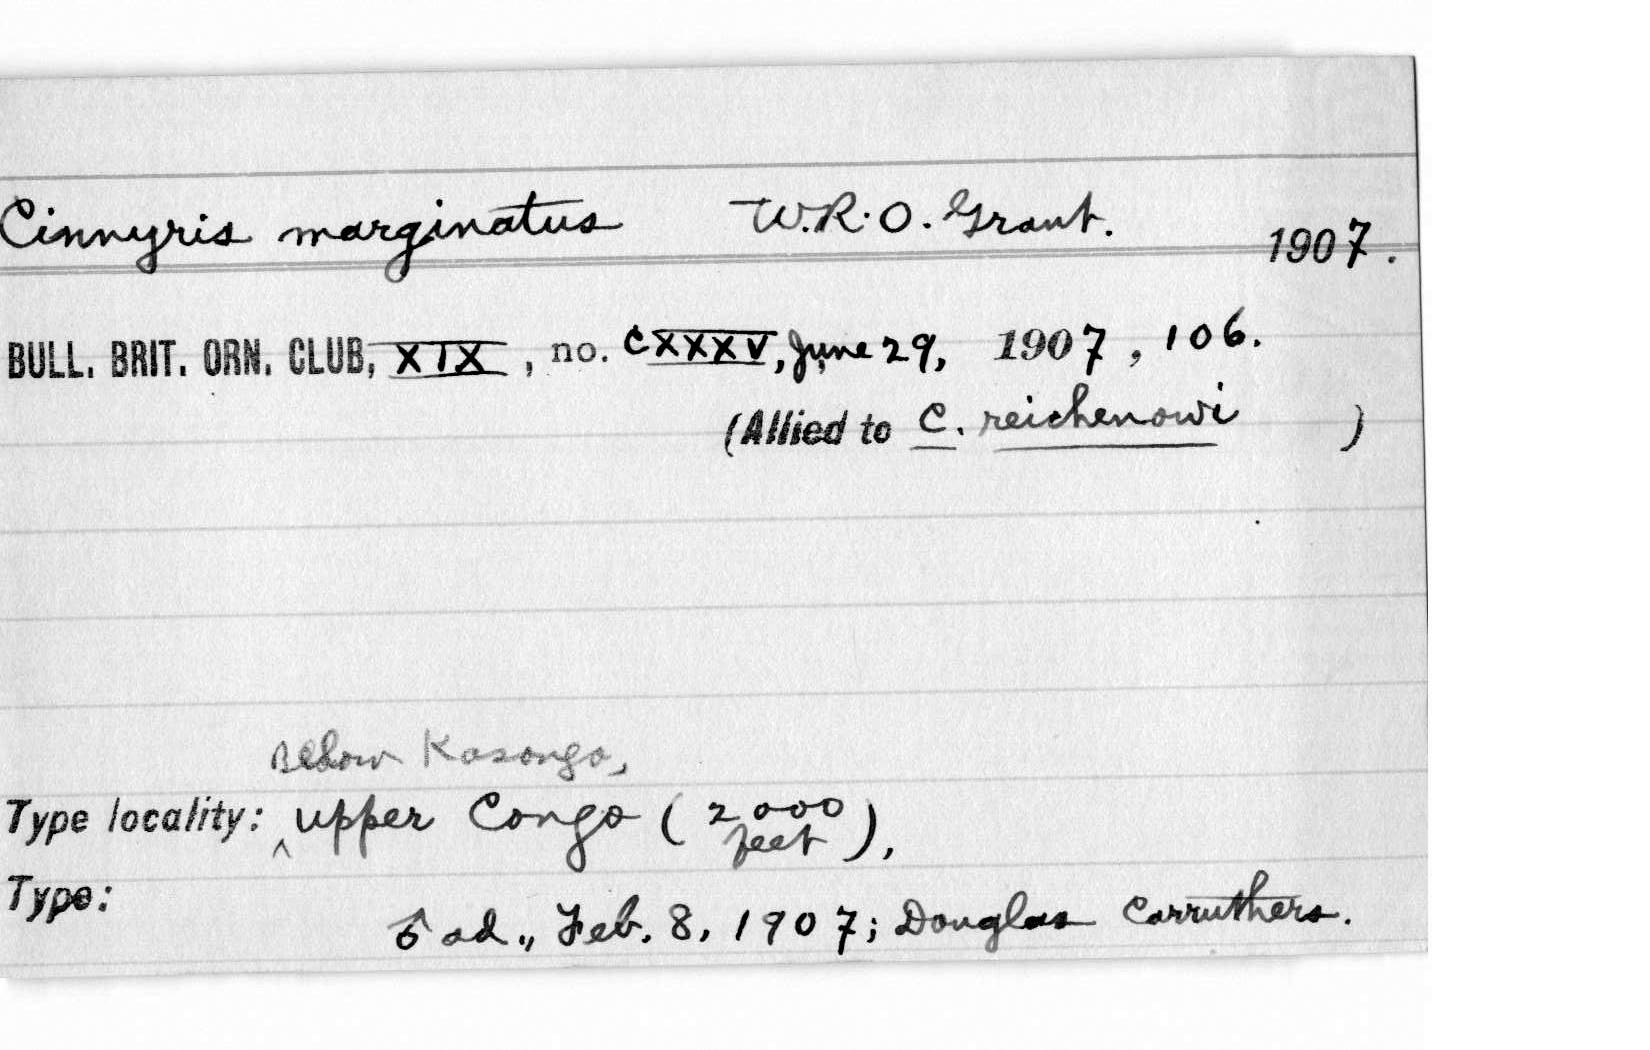 Cinnyris marginatus W.R.O. Grant. 1907.
BULL. BRIT. ORN. CLUB, XIX, no. CXXXV, June 29, 1907, 106.
(Allied to C. reichenowi )
Below Kasongo,
Type locality: ^ upper Congo (2000 feet),
Type:
♂ ad., Feb. 8, 1907; Douglas Carruthers.